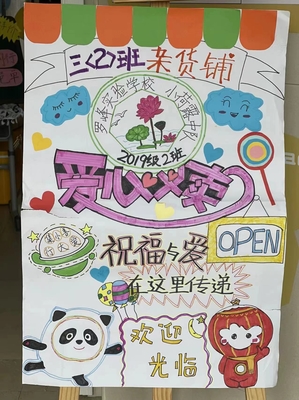 三(2)班杂货铺
罗峰实验学校 小荷露中队
2019级2班
爱心义卖
OPEN
祝福与爱
在这里传递
欢迎
光临